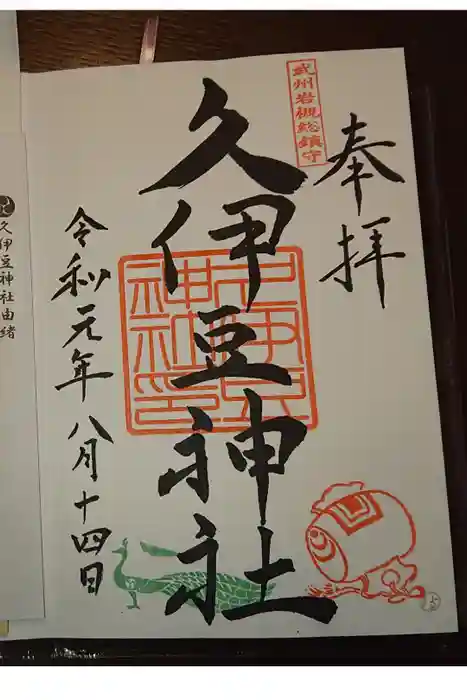 奉拝
武州岩槻総鎮守
久伊豆神社
令和元年八月十四日
久伊豆神社由緒